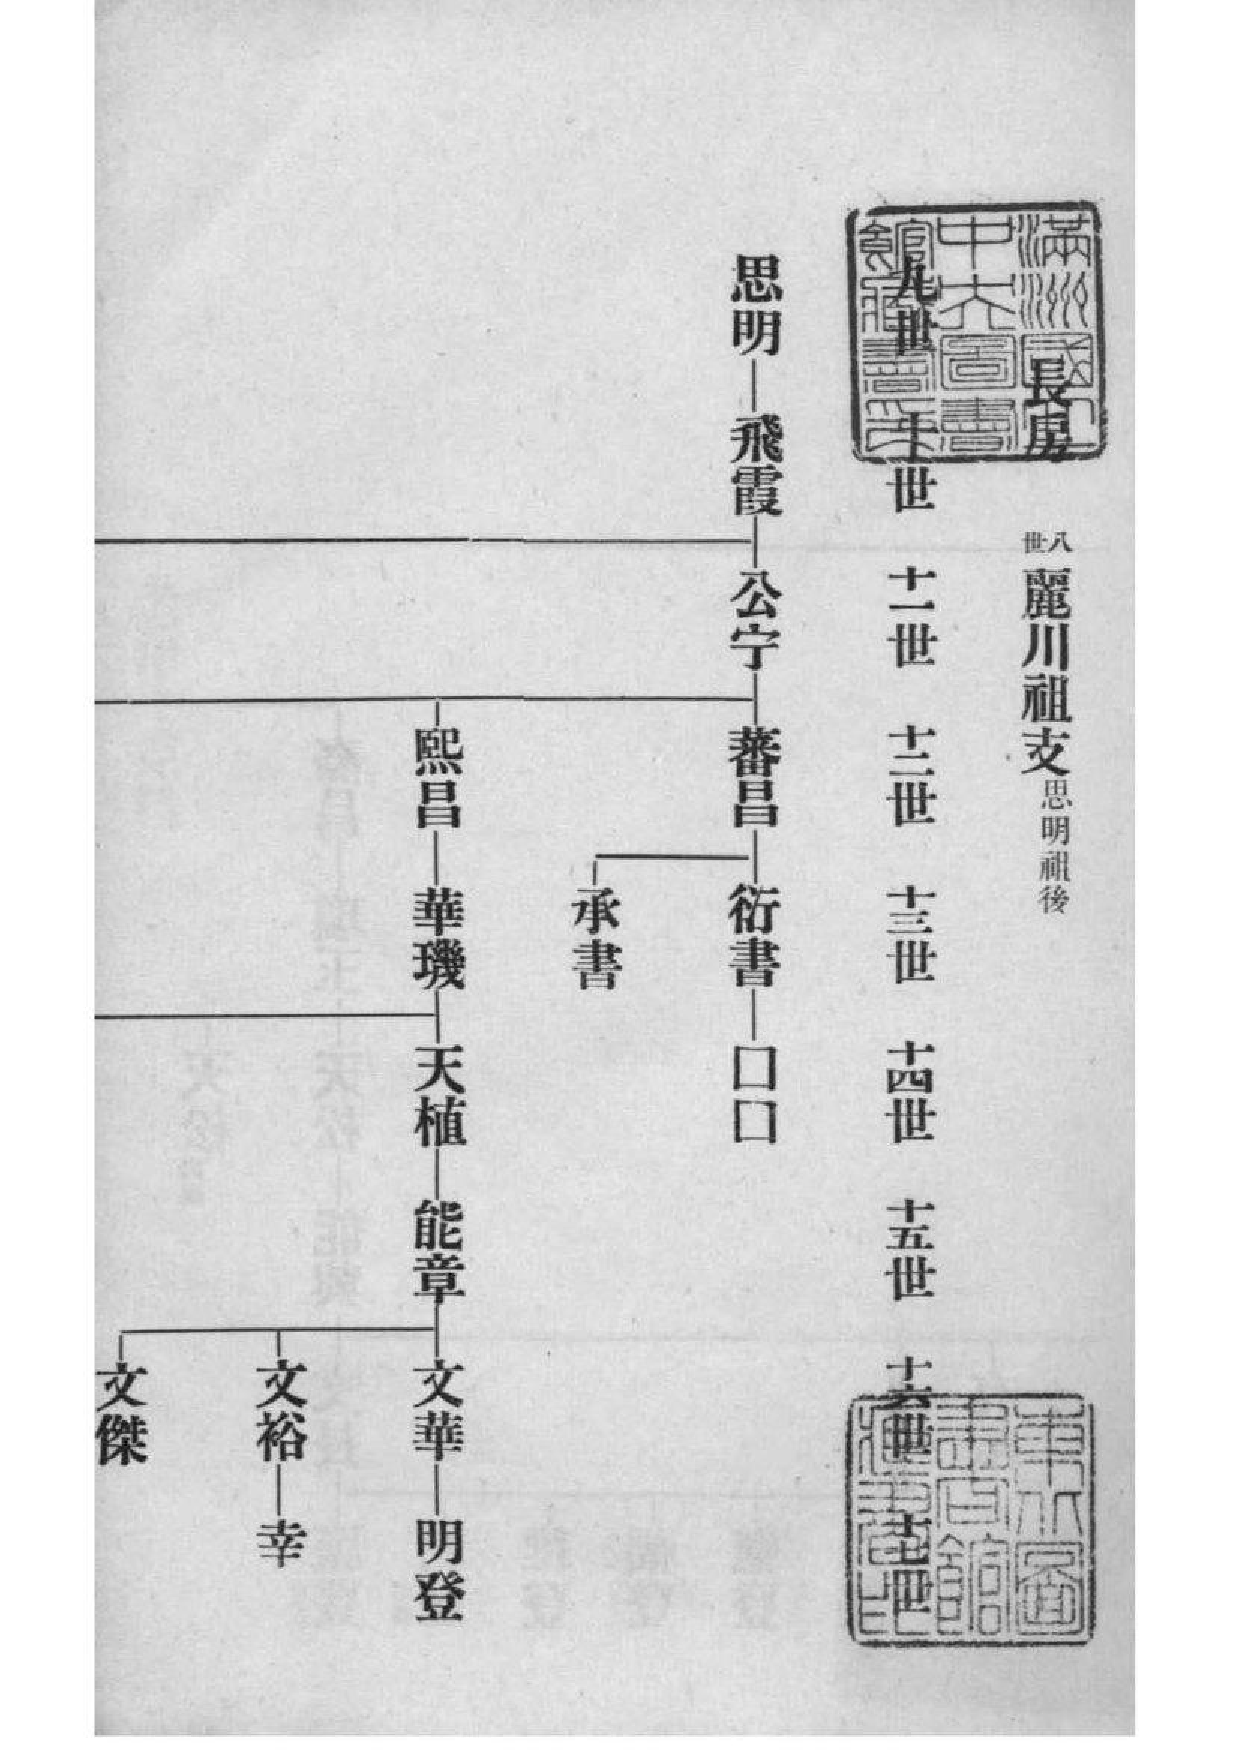 長房 八世 麗川祖支 思明祖後
九世 十世 十一世 十二世 十三世 十四世 十五世 十六世 十七世
思明 飛霞 公宁 蕃昌 衍書 口口
承書
熙昌 華璣 天植 能章 文華 明登
文裕 幸
文傑
滿洲國
中央圖書
館藏書印
東北圖
書館